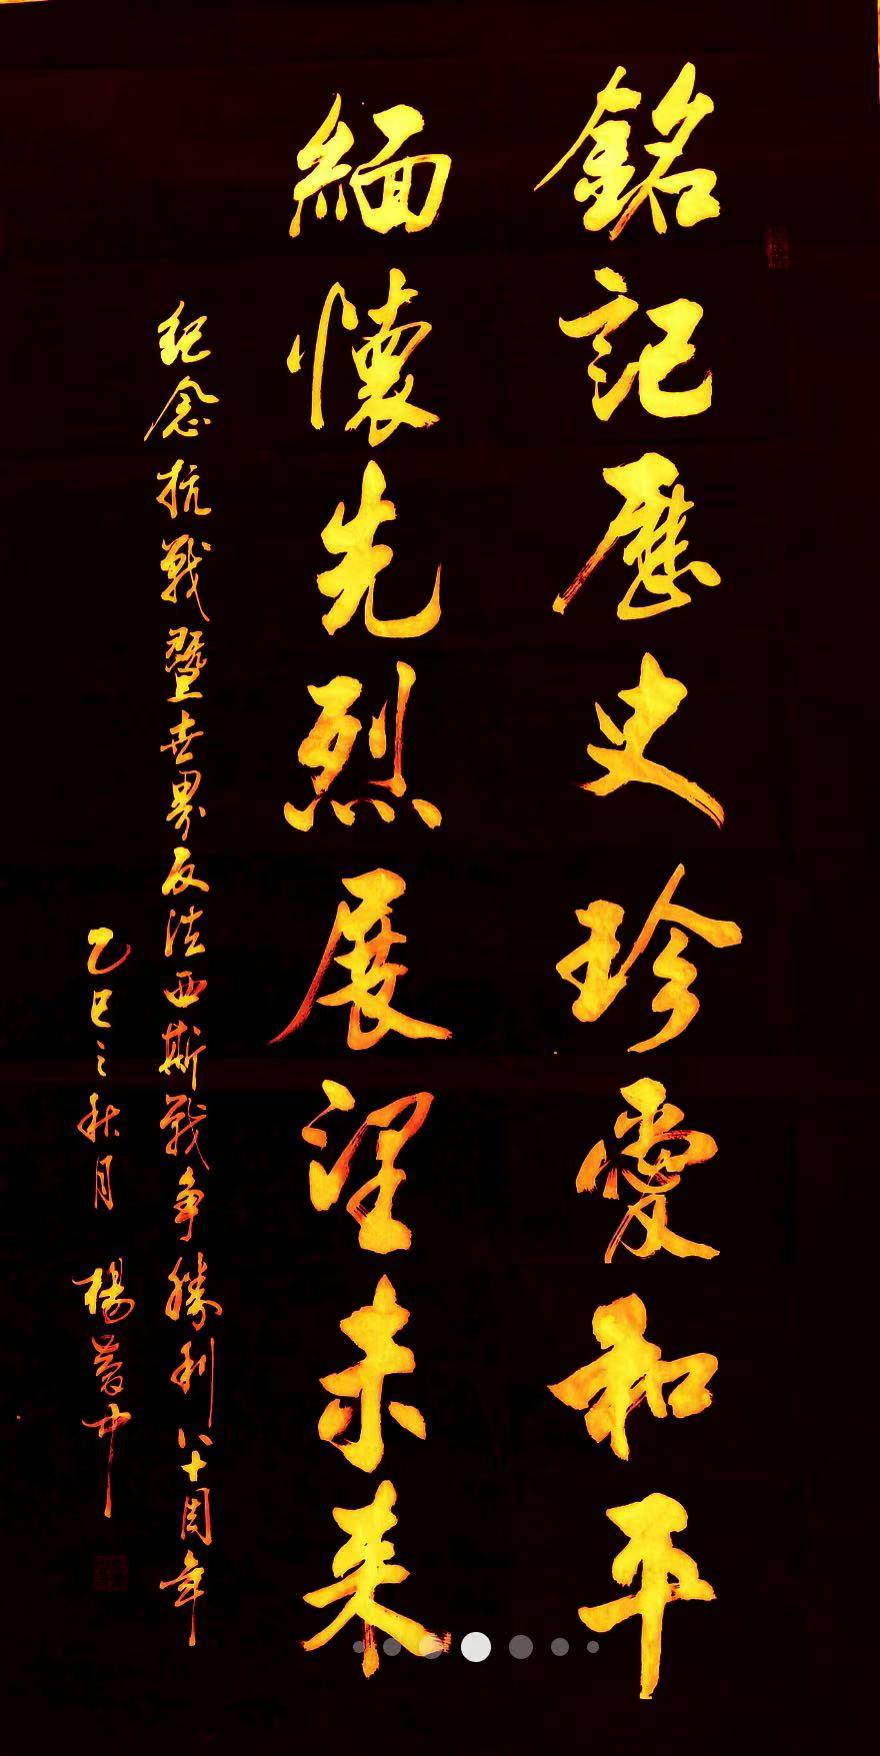 銘記歷史珍愛和平
緬懷先烈展望未来
紀念抗戰暨世界反法西斯戰争勝利八十周年
乙巳之秋月 楊中